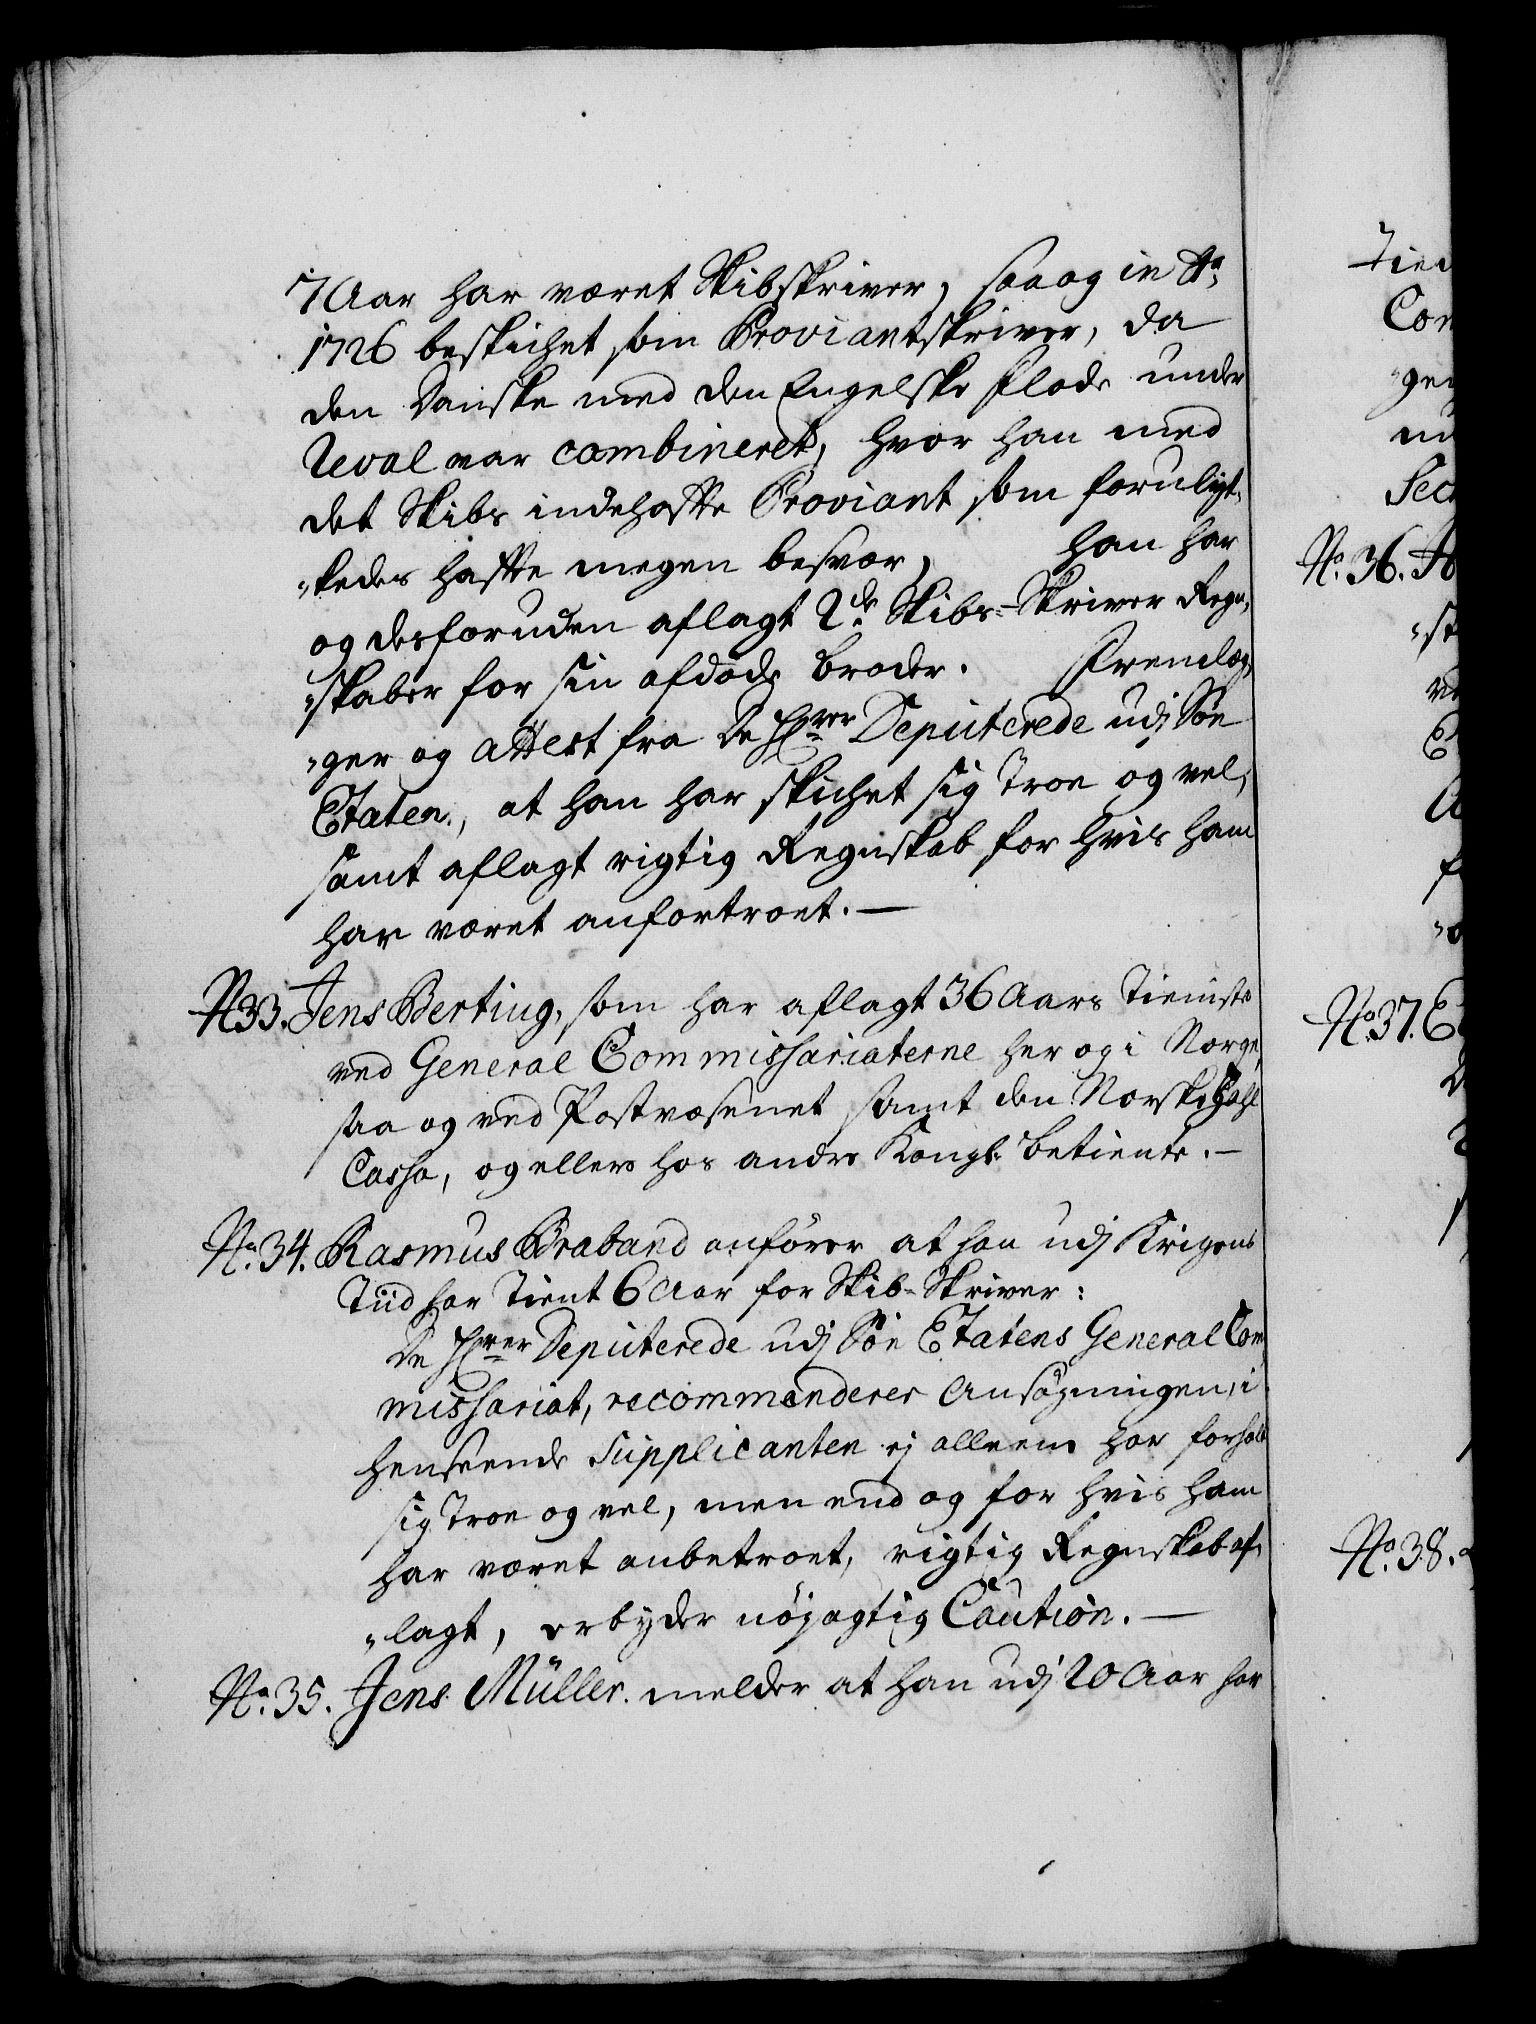 7 Aar har været Skibskriver, saa og in Ao
1726 beskichet som Proviantskriver, da
den Danske med den Engelske Flode under
Reval var combineret, hvor han med
det Skibs indehafte Proviant som foruligt,
„kedes hafte megen besvær, han har
og desforuden aflagt 2de Skibs-Skriver Regn,
„skaber for sin afdøde broder. Fremlæg,
„ger og attest fra De Hrer Deputerede udj Søe
Etaten, at han har skichet sig Troe og vel,
samt aflagt rigtig Regnskab for hvis ham
har været anfortroet. —
No 33. Jens Berting, som har aflagt 36 Aars Tieniste
ved General Commissariaterne her og i Norge,
saa og ved Postvæsenet samt den Norske Zahl
Cassa, og ellers hos andre Kongl: betiente. —
No. 34. Rasmus Braband anfører at han udj Krigens
Tiid har Tient 6 Aar for Skib-Skriver:
De Hrer Deputerede udj Søe Etatens General Com
missariat, recommenderer Ansøgningen, i
henseende Supplicanten ej alleene har forholt
sig Troe og vel, men end og for hvis ham
har været anbetroet, rigtig Regnskab af,
„lagt, erbyder nøjagtig Caution. —
No. 35. Jens Müller melder at han udj 20 Aar har
Tien
Con
„gen
Secr
No. 36.
„st
No. 37.
No. 38.